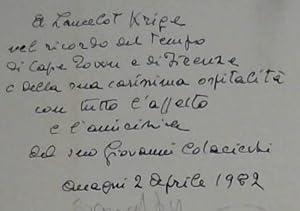 A Lancelot Krige
nel ricordo del tempo
di Cape Town e di Firenze
e della sua carissima ospitalità
con tutto l'affetto
e l'amicizia
del suo Giovanni Colacicchi
Anagni 2 Aprile 1982